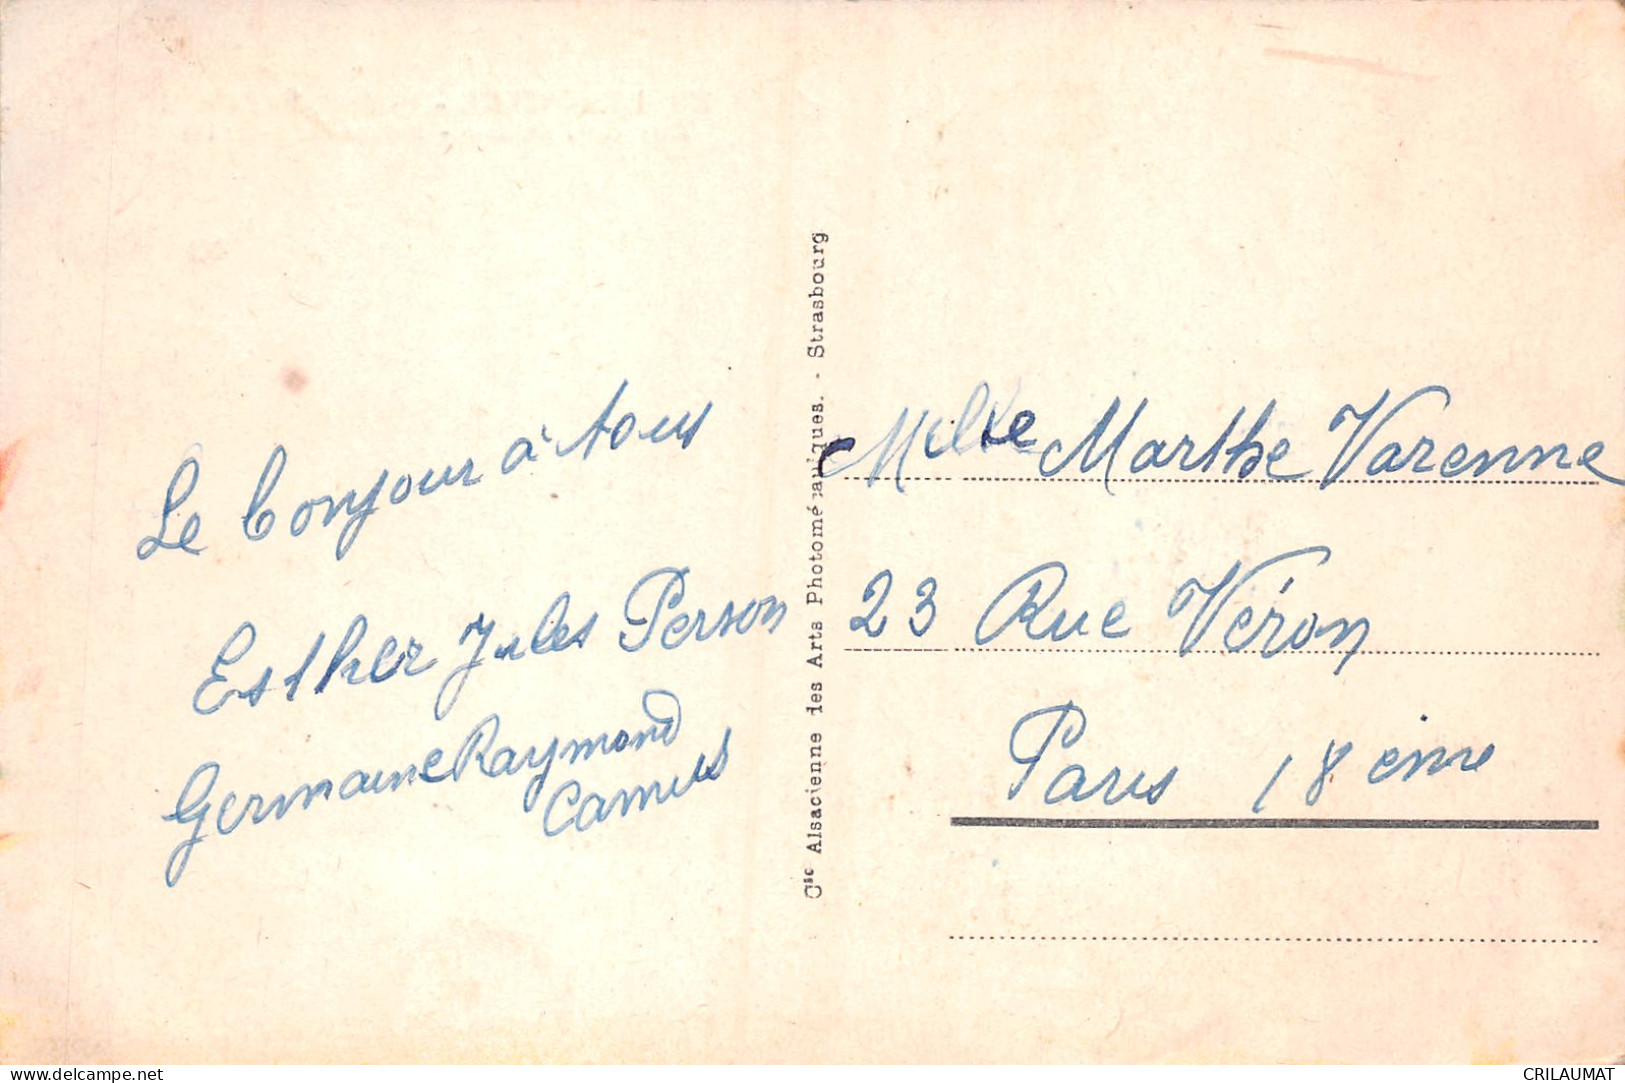 Le bonjour à tous
Esther Jules Person
Germaine Raymond
Camus
Cie Alsacienne des Arts Photomécaniques. - Strasbourg
Melle Marthe Varenne
23 Rue Véron
Paris 18 eme
www.delcampe.net
CRILAUMAT